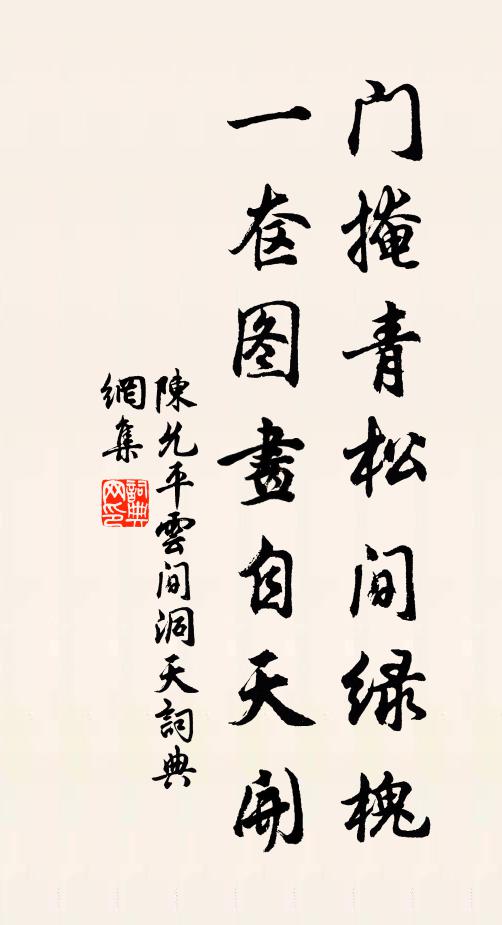 门掩青松间绿槐
一奁图畫自天開
陳允平雲间洞天詞典
網集
詞典
网印